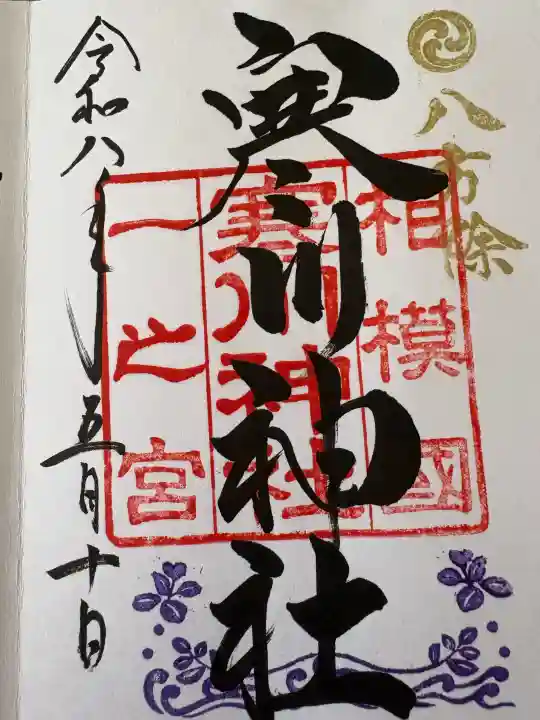 八方除
相模國
寒川神社
一之宮
寒川神社
令和八年五月十日